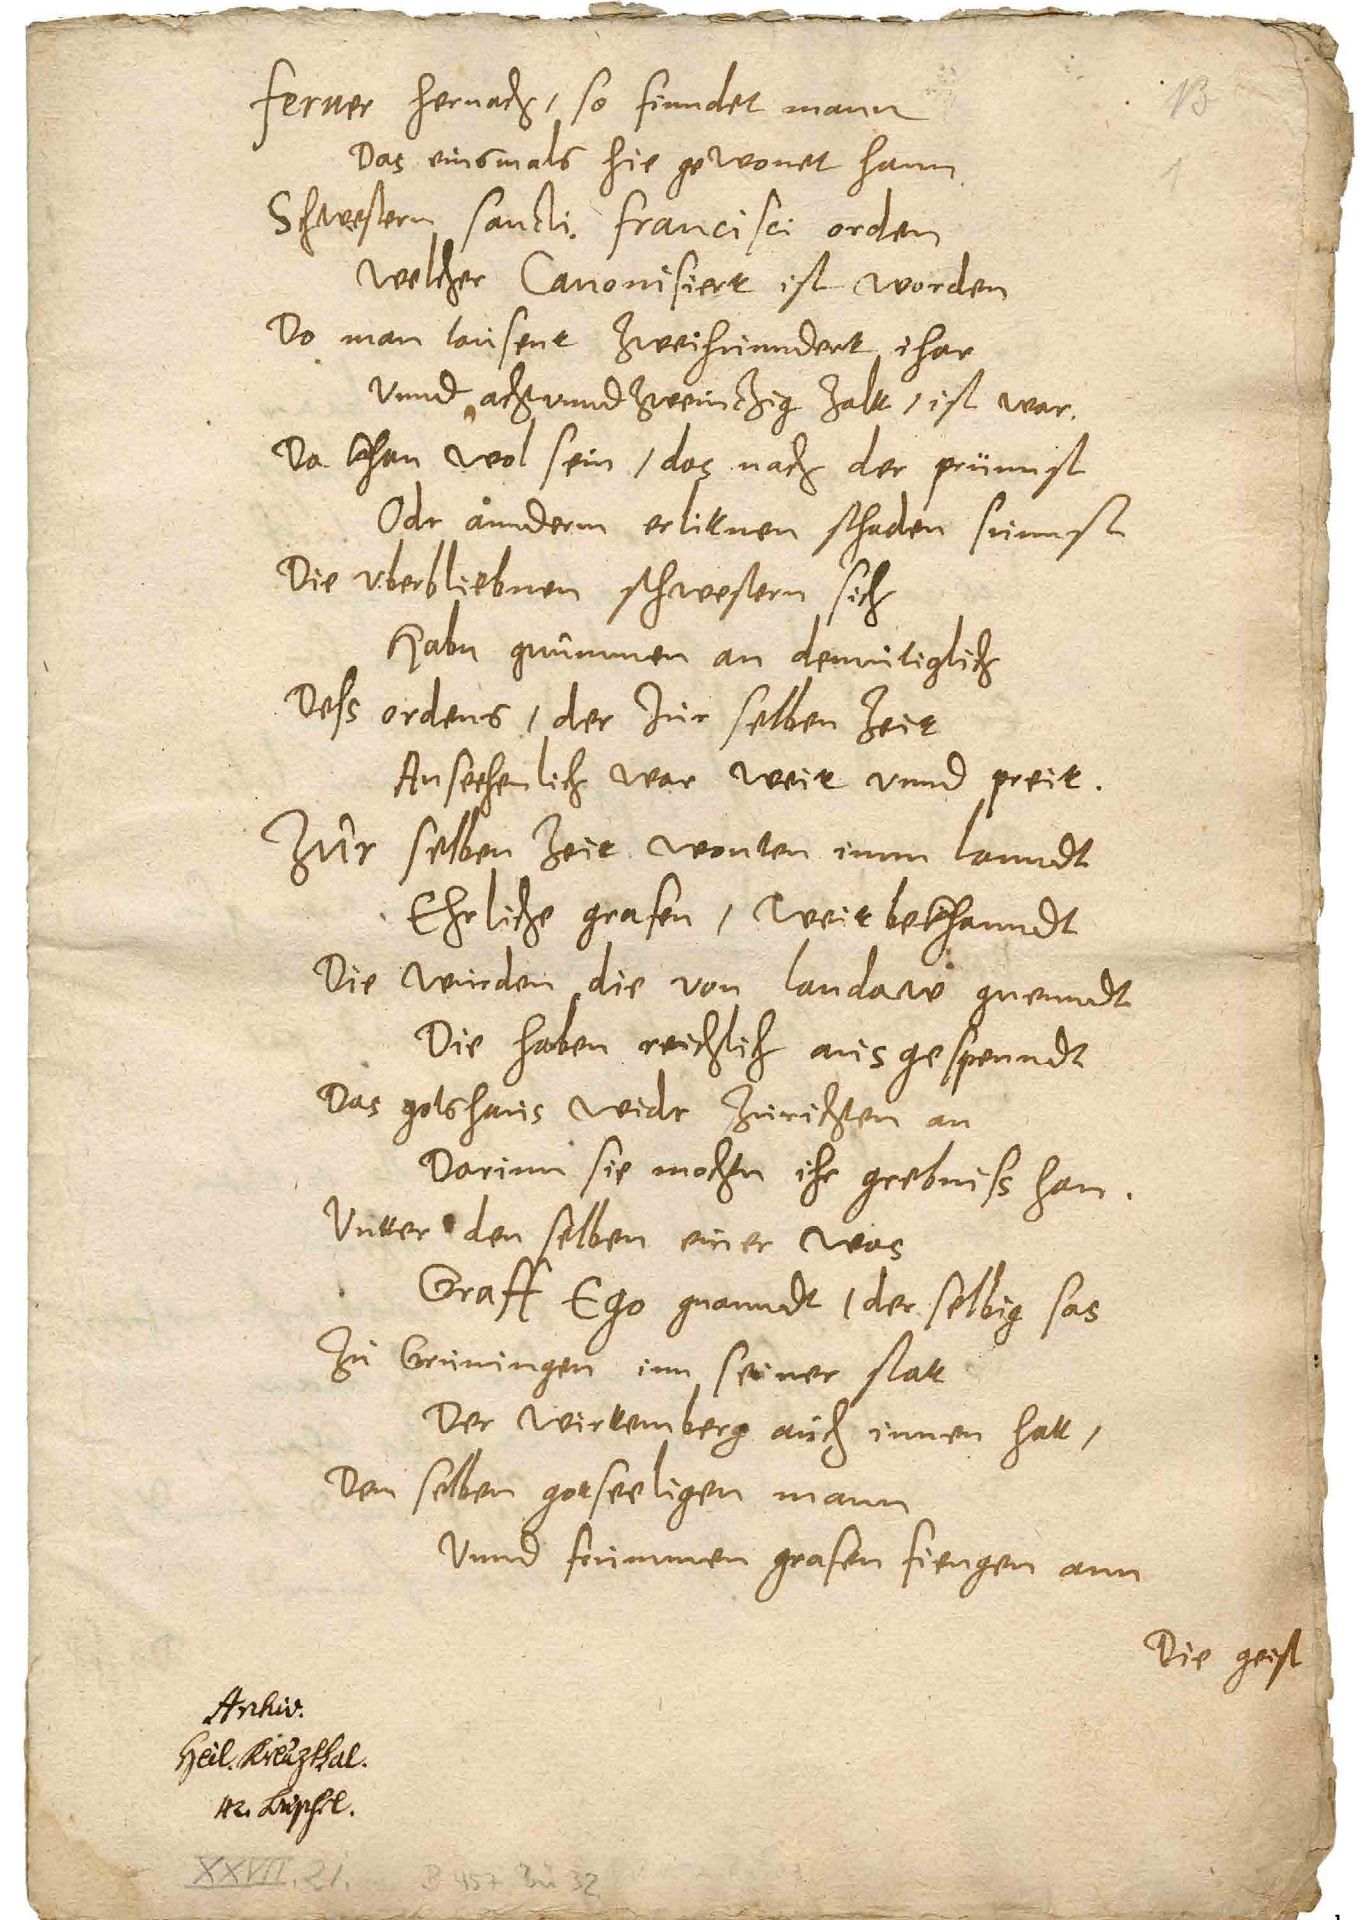 ferner hernach, so finndet mann
Das einsmals hie gewonet hann
Schwestern sancti. francisci orden
Welcher Canonisiert ist worden
Do man tausent Zweihunndert ihar
Vnnd acht vnnd Zweintzig Zalt, ist war.
Da khan wol sein, das nach der prunnst
Odr annderm erlittnen schaden sunnst
Die vberbliebnen schwestern sich
Habn gnummen an demütiglich
Dess ordens, der Zur selben Zeit
Ansechenlich war weit vnnd preit.
Zur selben Zeit wonten imm lanndt
Ehrliche grafen, weitbekhanndt
Die wurden die von landaw gnenndt
Die haben reichlich aus gespenndt
Das gotshaus widr Zurichten an
Darinn sie mochtn ihr grebniss han.
Vnter den selben einer was
Graff Ego gnanndt, der selbig sas
Zu Grüningen inn seiner statt
Der Wirttemberg auch innen hatt,
Den selben gottseeligen mann
Vnnd frummen grafen fiengen ann
Die geist
Archiv.
Heil. Kreuzthal.
XXVII. 21.
B 457 Bü 32